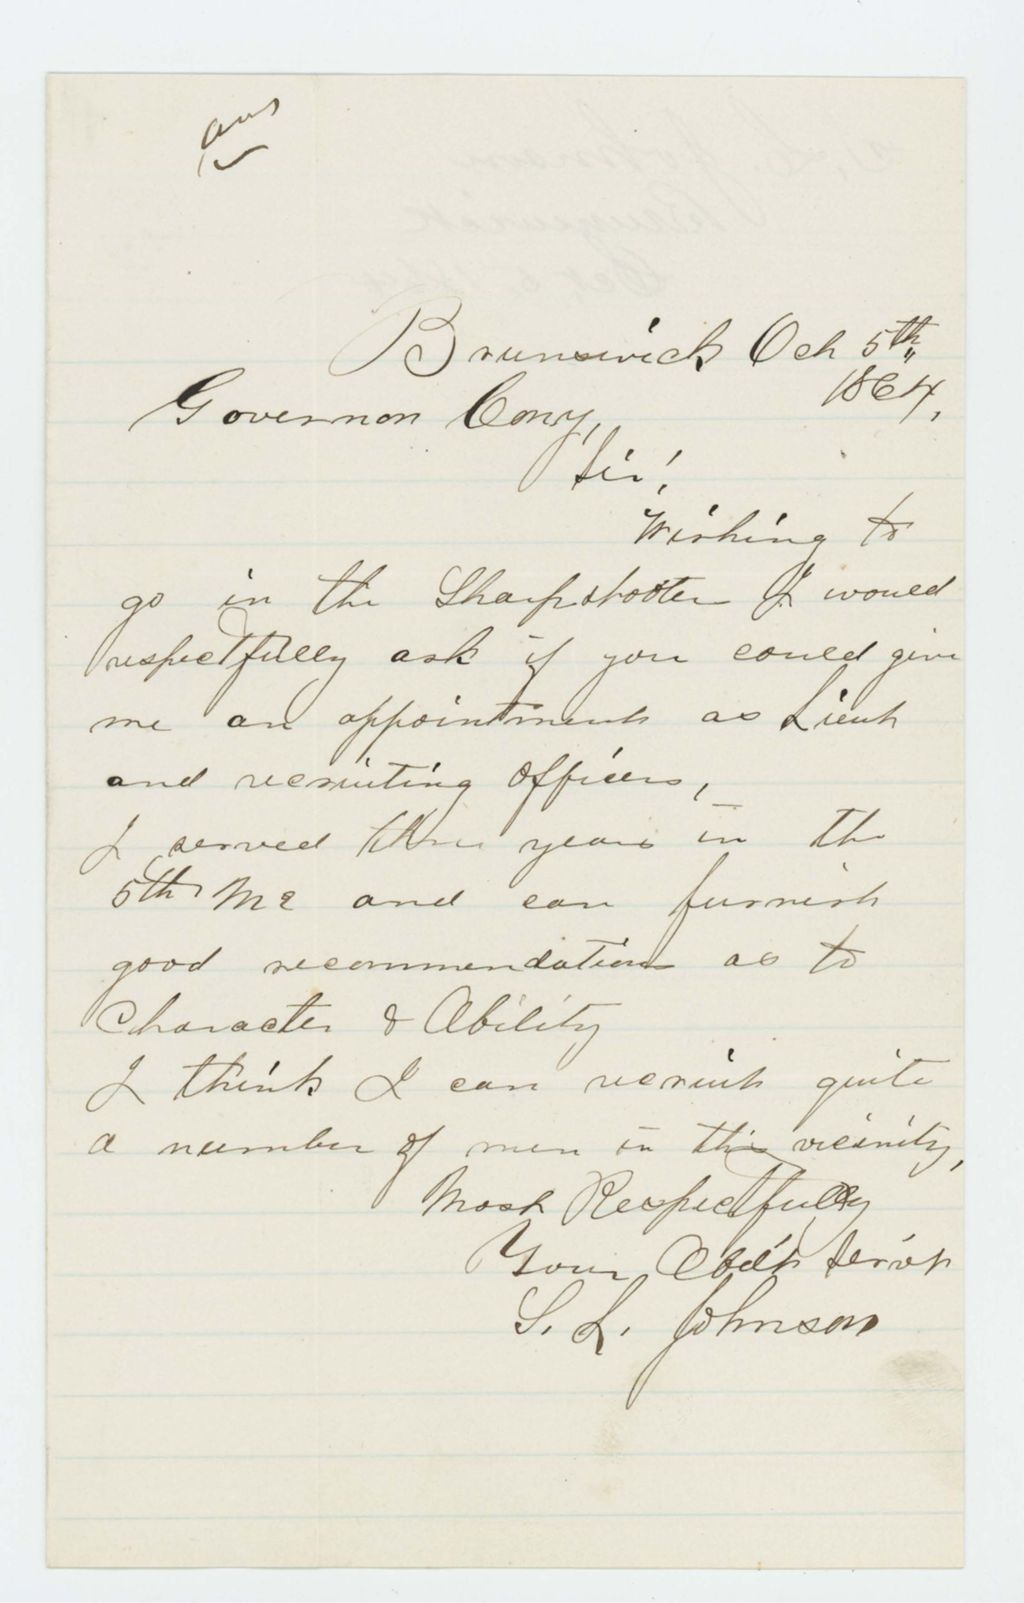 ans
Brunswick Oct 5th
1864,
Governor Cony,
Sir!
Wishing to
go in the Sharpshooters I would
respectfully ask if you could give
me an appointment as Lieut
and recruiting officer,
I served three years in the
5th Me and can furnish
good recommendations as to
Character & Ability
I think I can recruit quite
a number of men in this vicinity,
Most Respectfully
Your Obd't Serv't
S. L. Johnson